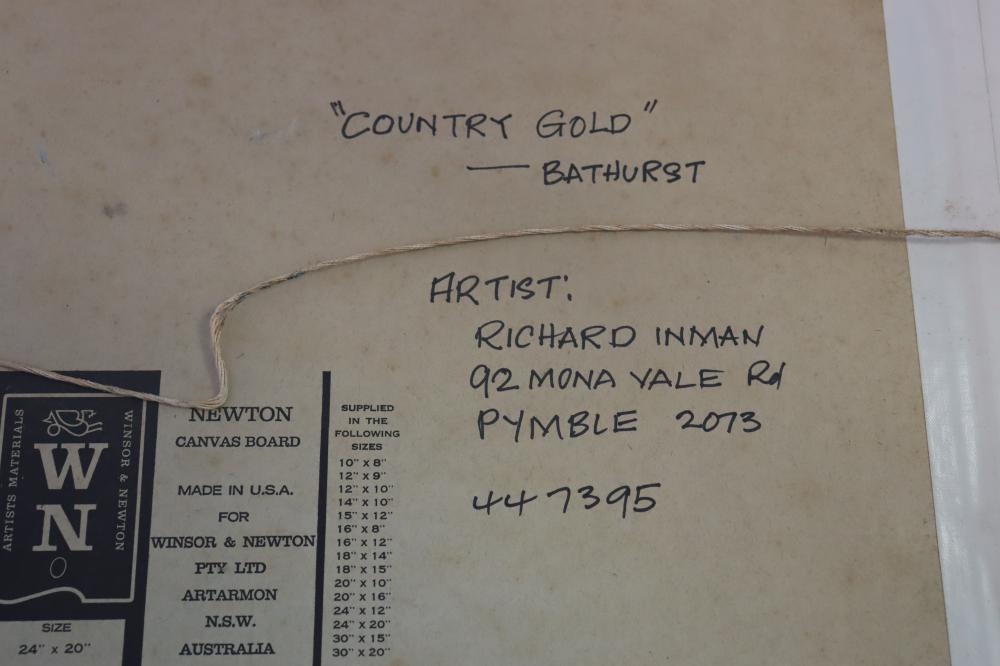 "COUNTRY GOLD"
— BATHURST
ARTIST:
RICHARD INMAN
92 MONA VALE Rd
PYMBLE 2073
447395
ARTISTS MATERIALS
WN
WINSOR & NEWTON
SIZE
24" x 20"
NEWTON
CANVAS BOARD
MADE IN U.S.A.
FOR
WINSOR & NEWTON
PTY LTD
ARTARMON
N.S.W.
AUSTRALIA
SUPPLIED
IN THE
FOLLOWING
SIZES
10" x 8"
12" x 9"
12" x 10"
14" x 10"
15" x 12"
16" x 8"
16" x 12"
18" x 14"
18" x 15"
20" x 10"
20" x 16"
24" x 12"
24" x 20"
30" x 15"
30" x 20"